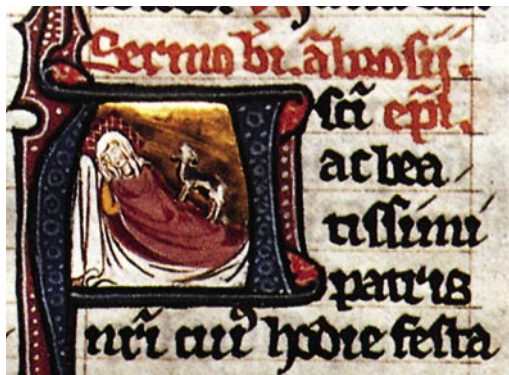 Sermo bī. ābrosij.
A scī ep̄i.
ac bea
tissimi
patris
nr̄i cui᷒ hodie festa